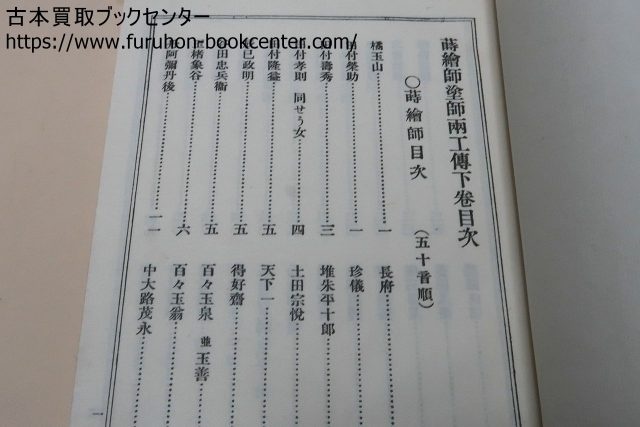 古本買取ブックセンター
https://www.furuhon-bookcenter.com/
蒔繪師塗師兩工傳下卷目次
〇蒔繪師目次
（五十音順）
橘玉山……一
付榮助……一
付壽秀……三
付孝則 同せう女……四
付隆益……五
巳政明……五
田忠兵衞……五
楮象谷……六
阿彌丹後……一一
長府
珍儀
堆朱平十郎
土田宗悅
天下一
得好齋
百々玉泉 並 玉善
百々玉翁
中大路茂永
一